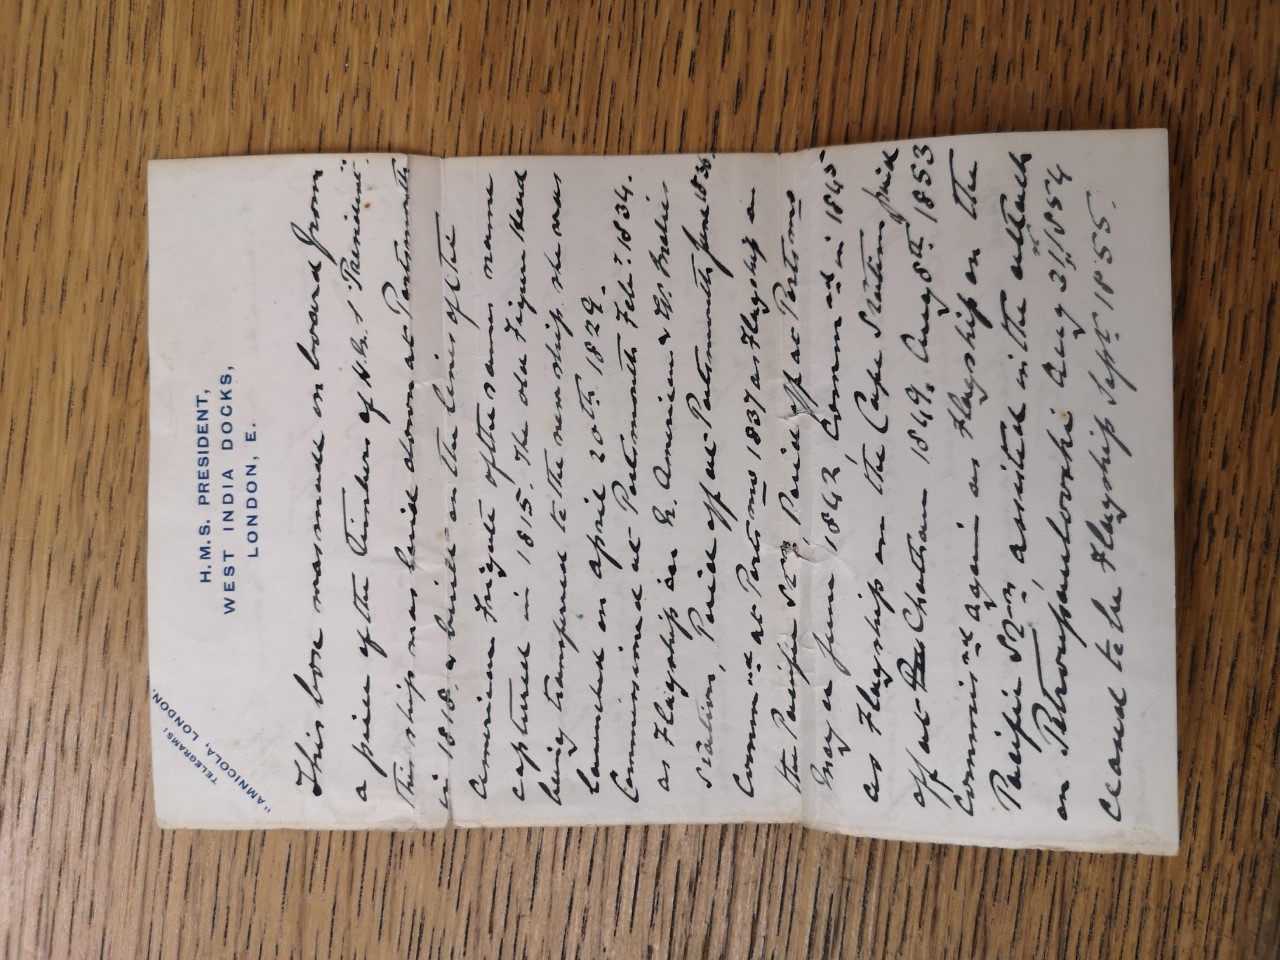 "AMNICOLA, LONDON.
TELEGRAMS:
H.M.S. PRESIDENT,
WEST INDIA DOCKS,
LONDON, E.
This box was made on board from
a piece of the timbers of H.M.S "President".
This ship was laid down at Portsmouth
in 1818 & built on the lines of the
American Frigate of the same name
captured in 1815. The old Figure Head
being transferred to the new ship. She was
launched on april 20th 1829.
Commissioned at Portsmouth Feby 1834.
as Flagship on N. American & W. Indies
stations, Paid off at Portsmouth June 1836.
Commnd at Portsmo 1837 as Flagship on
the Pacific Stn, Paid off at Portsmo
in 1842, Commnd in 1845
as Flagship on the Cape Station, paid
off at Chatham 1849. Aug 8th 1853
Commisnd again as Flagship on the
Pacific Stn, assisted in the attack
on Petroupaulovski Aug 31 1854
ceased to be Flagship Sept 1855.